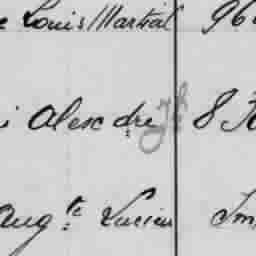 e Louis Martial 96
i Alexdre 8
Augte Lucien Im